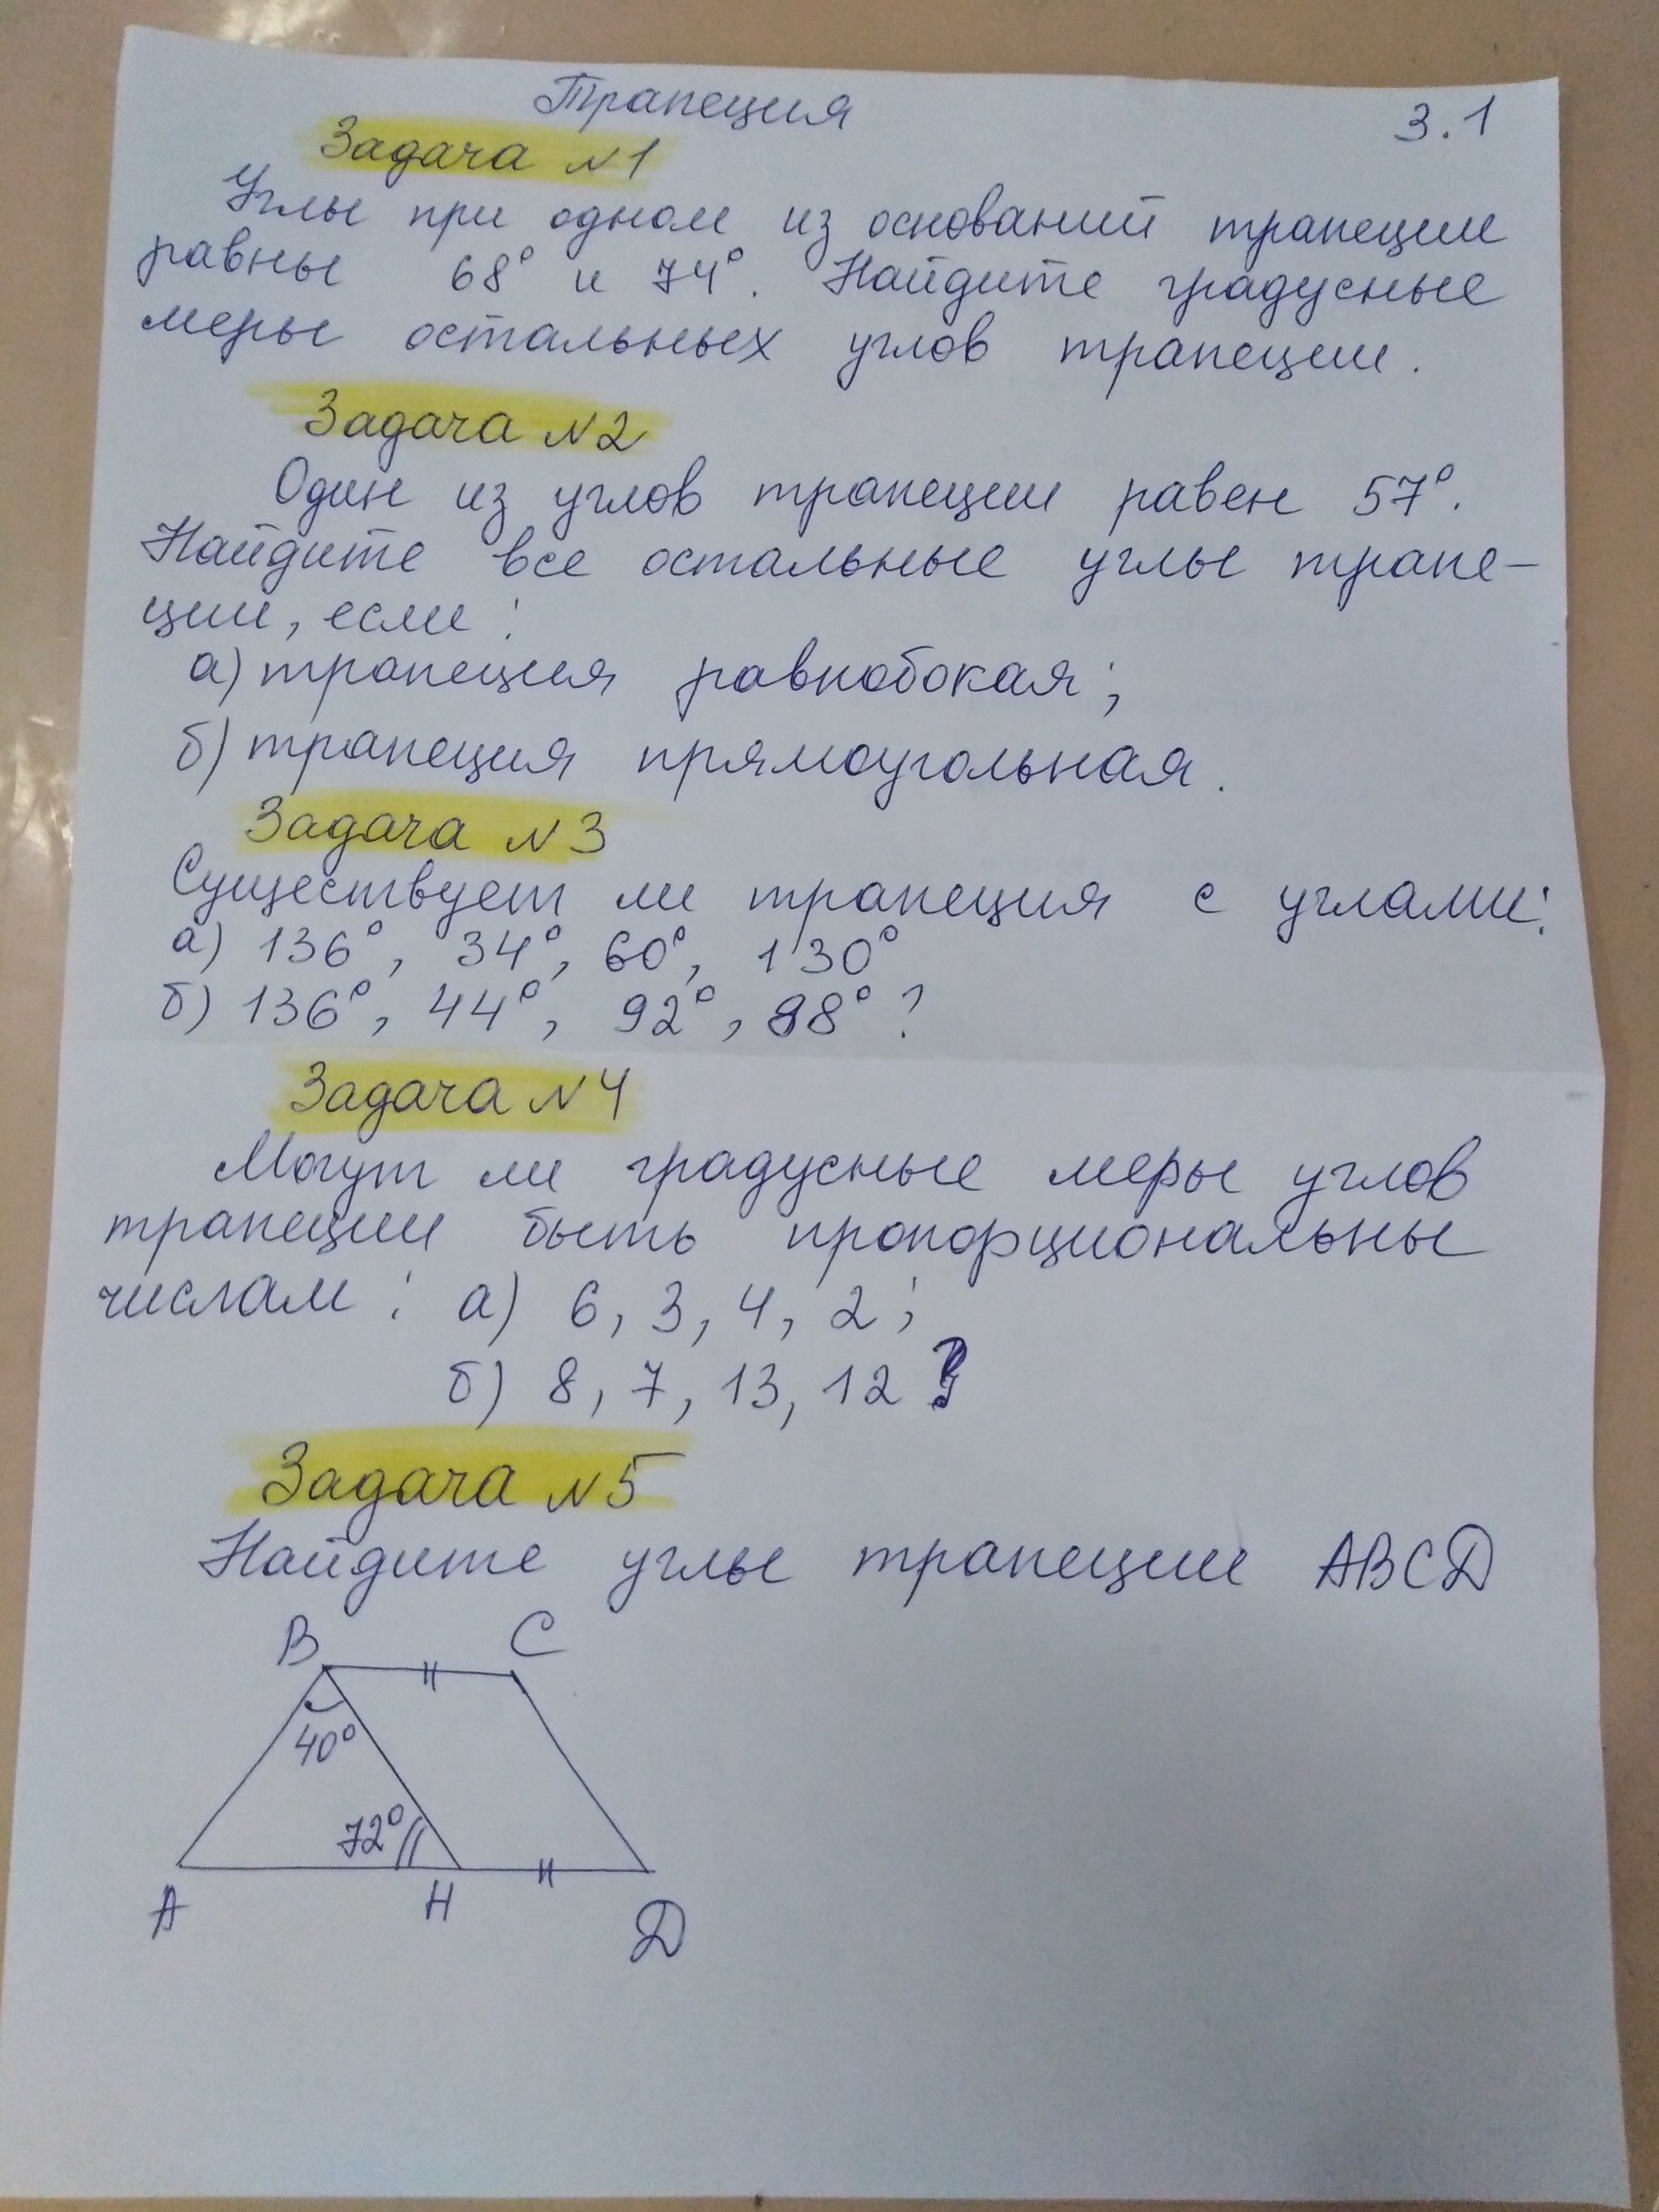 Трапеция
3.1
Задача №1
Углы при одном из оснований трапеции
равны 68° и 74°. Найдите градусные
меры остальных углов трапеции.
Задача №2
Один из углов трапеции равен 57°.
Найдите все остальные углы трапе-
ции, если:
а) трапеция равнобокая;
б) трапеция прямоугольная.
Задача №3
Существует ли трапеция с углами:
а) 136°, 34°, 60°, 130°
б) 136°, 44°, 92°, 88°?
Задача №4
Могут ли градусные меры углов
трапеции быть пропорциональны
числам: а) 6, 3, 4, 2;
б) 8, 7, 13, 12?
Задача №5
Найдите углы трапеции ABCD
B C
40°
72°
A H D